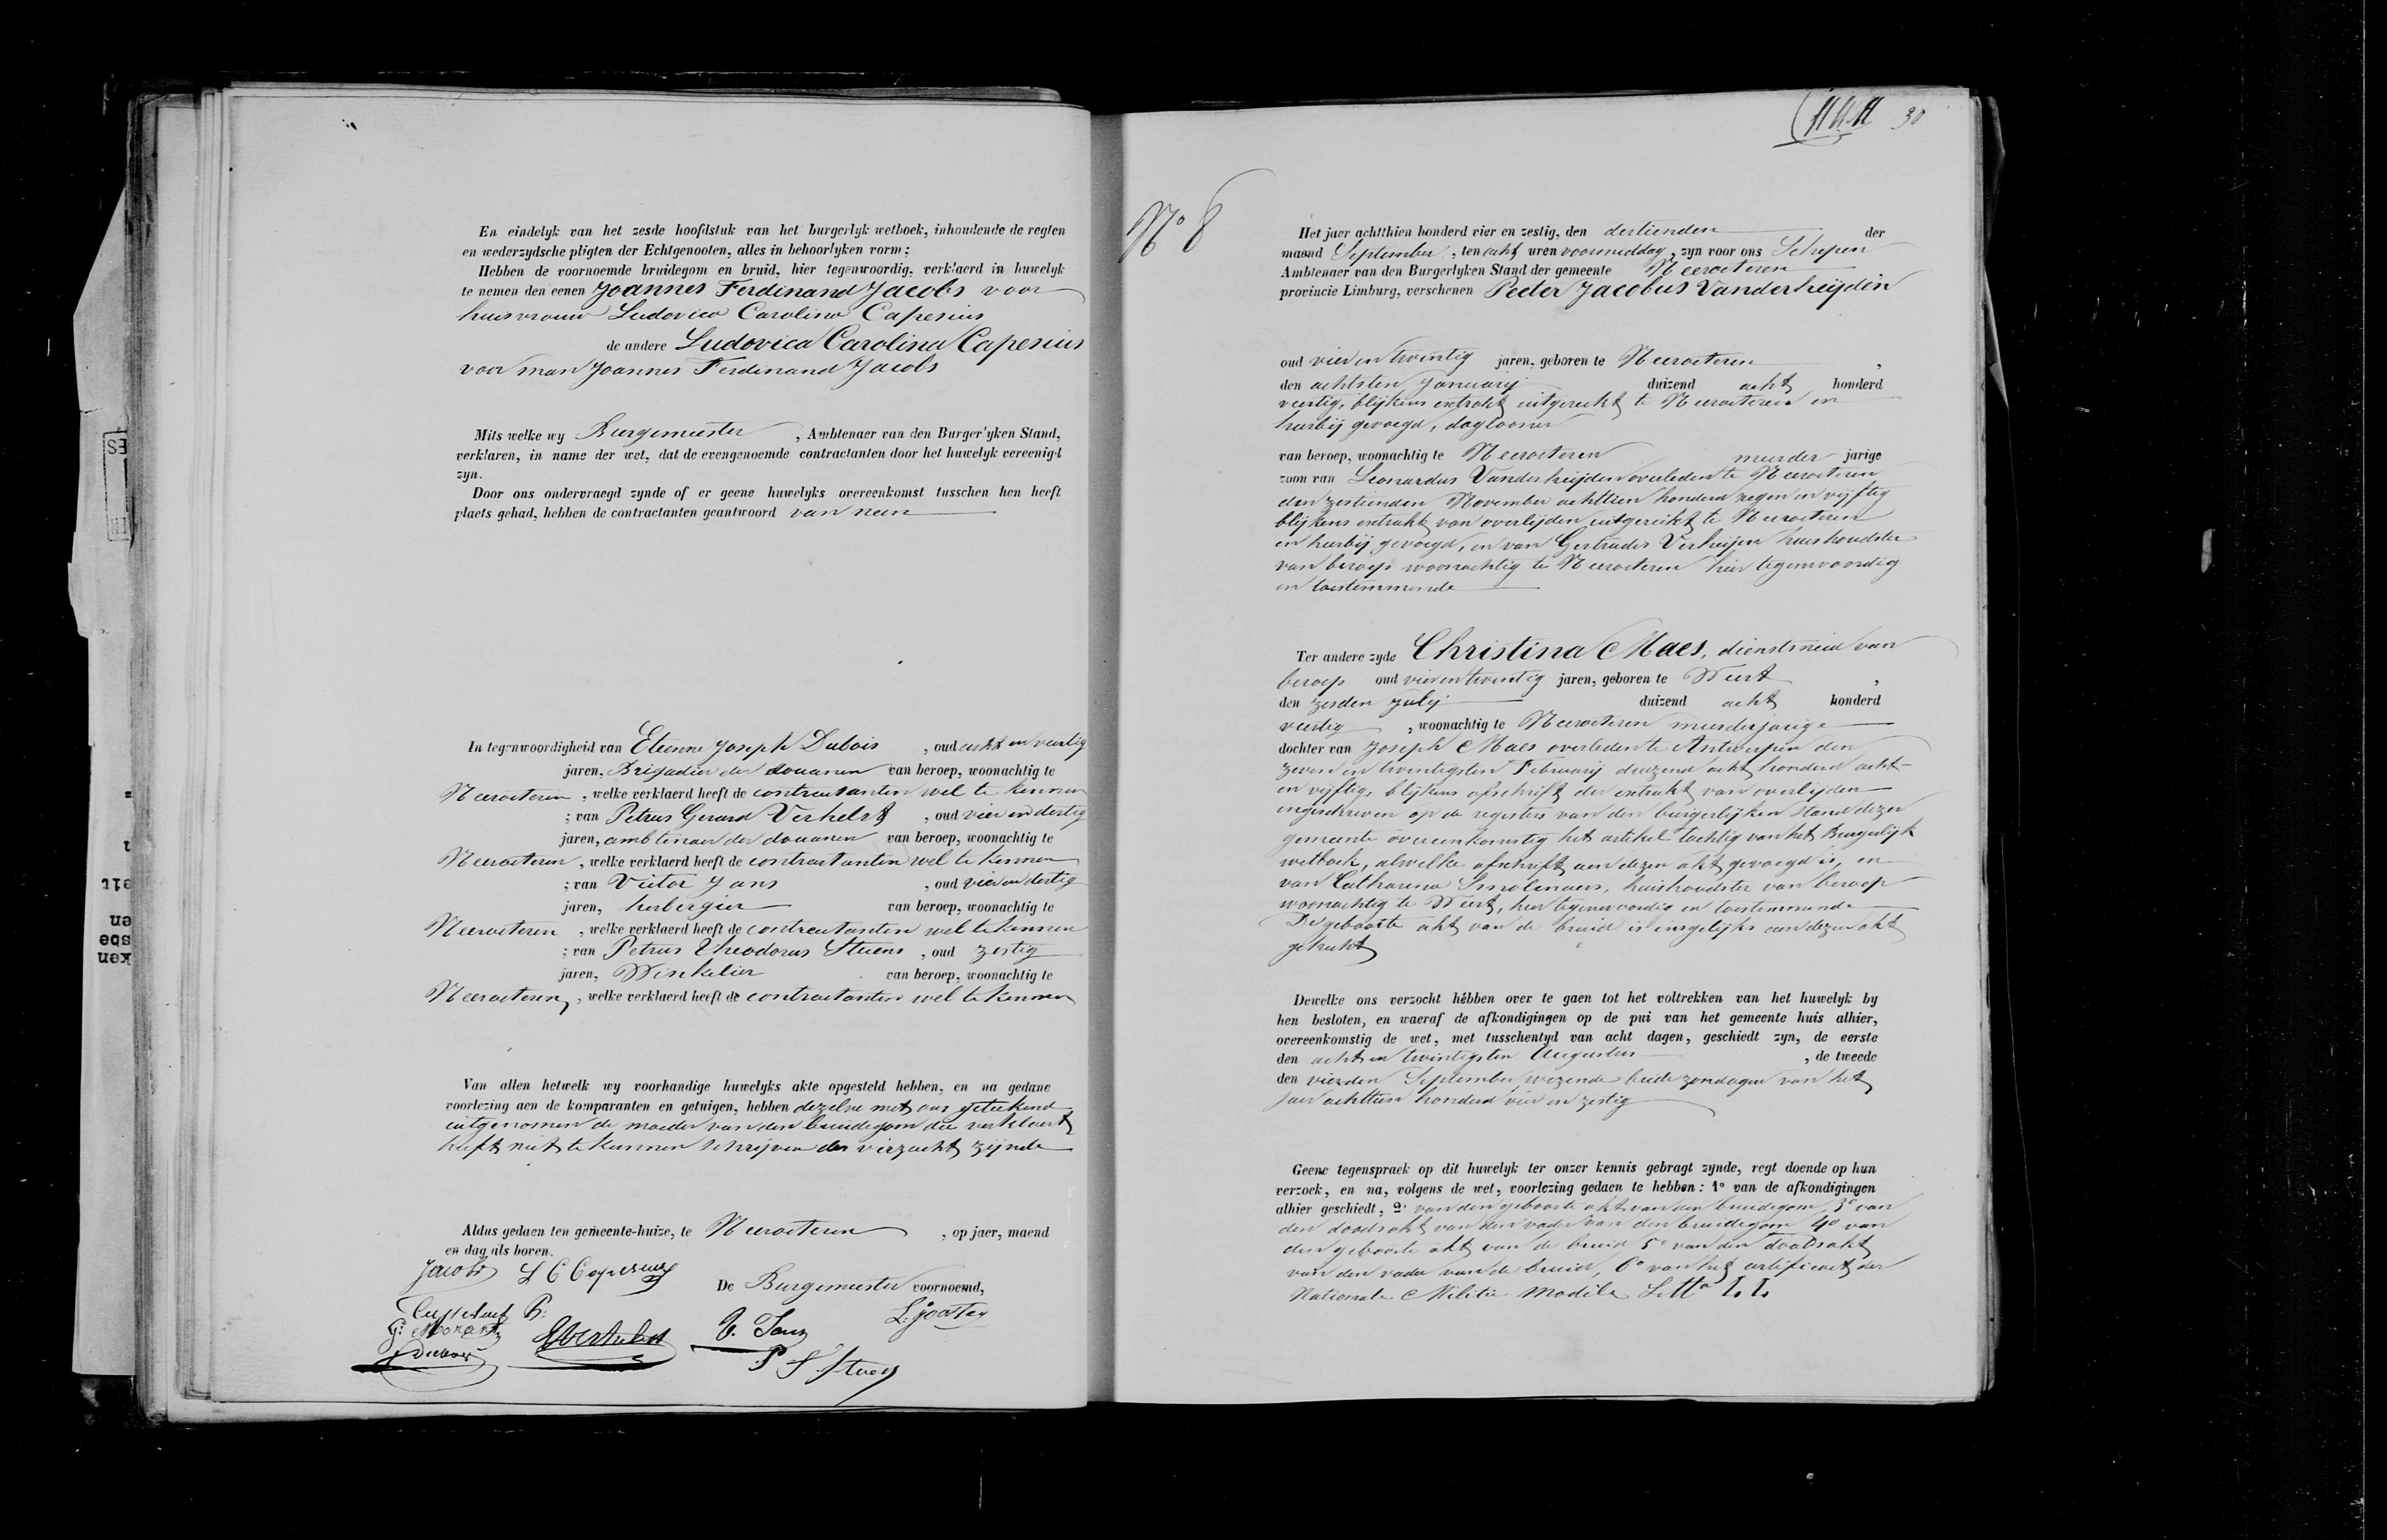 En eindelyk van het zesde hoofdstuk van het burgerlyk wetboek, inhoudende de regten
en wederzydsche pligten der Echtgenooten, alles in behoorlyken vorm;
Hebben de voornoemde bruidegom en bruid, hier tegenwoordig, verklaerd in huwelyk
te nemen den eenen Joannes Ferdinand Jacobs voor
huisvrouw Ludovica Carolina Capesius
de andere Ludovica Carolina Capesius
voor man Joannes Ferdinand Jacobs
Mits welke wy Burgemeester , Ambtenaer van den Burger'yken Stand,
verklaren, in name der wet, dat de evengenoemde contractanten door het huwelyk vereenigd
zyn.
Door ons ondervraegd zynde of er geene huwelyks overeenkomst tusschen hen heeft
plaets gehad, hebben de contractanten geantwoord van neen
In tegenwoordigheid van Etienne Joseph Dubois , oud acht en veertig
jaren, Brigadier der douanen van beroep, woonachtig te
Neeroeteren , welke verklaerd heeft de contractanten wel te kennen
; van Petrus Gerard Verhelst , oud vier en dertig
jaren, ambtenaer der douanen van beroep, woonachtig te
Neeroeteren , welke verklaerd heeft de contractanten wel te kennen
; van Victor Jans , oud vier en dertig
jaren, herbergier van beroep, woonachtig te
Neeroeteren , welke verklaerd heeft de contractanten wel te kennen
; van Petrus Theodorus Steens , oud zestig
jaren, Winkelier van beroep, woonachtig te
Neeroeteren, welke verklaerd heeft de contractanten wel te kennen
Van allen hetwelk wy voorhandige huwelyks akte opgesteld hebben, en na gedane
voorlezing aen de komparanten en getuigen, hebben dezelve met ons geteekend
uitgenomen de moeder van den bruidegom die verklaert
heeft niet te kunnen schrijven des verzocht zijnde
Aldus gedaen ten gemeente-huize, te Neeroeteren , op jaer, maend
en dag als boven.
Jacobs L C Capesius
De Burgemeester voornoemd,
V. Jans
P T Steens
N° 8
30
Het jaer achtthien honderd vier en zestig, den dertienden der
maand September , ten acht uren voormiddag, zyn voor ons Schepen
Ambtenaer van den Burgerlyken Stand der gemeente Neeroeteren
provincie Limburg, verschenen Peeter Jacobus Vanderheijden
oud vier en twintig jaren, geboren te Neeroeteren ,
den achtsten January duizend acht honderd
veertig, blijkens extrakt uitgereikt te Neeroeteren en
hierbij gevoegd, daglooner
van beroep, woonachtig te Neeroeteren meerder jarige
zoon van Leonardus Vanderheijden overleden te Neeroeteren
den zestienden November achttien honderd negen en vijftig
blijkens extrakt van overlijden uitgereikt te Neeroeteren
en hierbij gevoegd, en van Gertrudes Verheijen huishoudster
van beroep woonachtig te Neeroeteren hier tegenwoordig
en toestemmende
Ter andere zyde Christina Maes, dienstmeid van
beroep oud vier en twintig jaren, geboren te Weert ,
den zesden July duizend acht honderd
veertig , woonachtig te Neeroeteren meerderjarige
dochter van Joseph Maes overleden te Antwerpen den
zeven en twintigsten February duizend acht honderd acht-
en vijftig, blijkens afschrift der extrakt van overlijden
ingeschreven op de registers van den burgerlijken stand dezer
gemeente overeenkomstig het artikel tachtig van het Burgerlijk
wetboek, alwelke afschrift aen dezen akt gevoegd is, en
van Catharina Smolenaers, huishoudster van beroep
woonachtig te Weert, hier tegenwoordig en toestemmende
De geboorte akt van de bruid is insgelijks aen dezen akt
gehecht
Dewelke ons verzocht hébben over te gaen tot het voltrekken van het huwelyk by
hen besloten, en waeraf de afkondigingen op de pui van het gemeente huis alhier,
overeenkomstig de wet, met tusschentyd van acht dagen, geschiedt zyn, de eerste
den acht en twintigsten Augustus , de tweede
den vierden September, wezende beide zondagen van het
jaer achttien honderd vier en zestig
Geene tegenspraek op dit huwelyk ter onzer kennis gebragt zynde, regt doende op hun
verzoek, en na, volgens de wet, voorlezing gedaen te hebben: 1° van de afkondigingen
alhier geschiedt, 2° van den geboorte akt van den bruidegom, 3° van
den doods akt van den vader van den bruidegom 4° van
den geboorte akt van de bruid 5° van den doods akt
van den vader van de bruid, 6° van het certificaet der
Nationale Militie Modèle Litt° L L